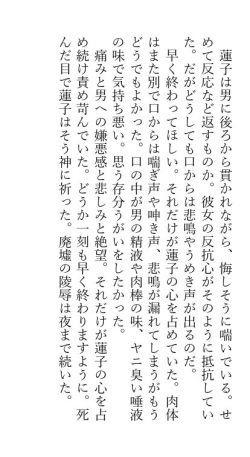 蓮子は男に後ろから貫かれながら、悔しそうに喘いでいる。せ
めて反応など返すものか。彼女の反抗心がそのように抵抗してい
た。だがどうしても口からは悲鳴やうめき声が出るのだ。
　早く終わってほしい。それだけが蓮子の心を占めていた。肉体
はまた別で口からは喘ぎ声や呻き声、悲鳴が漏れてしまうがもう
どうでもよかった。口の中が男の精液や肉棒の味、ヤニ臭い唾液
の味で気持ち悪い。思う存分うがいをしたかった。
　痛みと男への嫌悪感と悲しみと絶望。それだけが蓮子の心を占
め続け責め苛んでいた。どうか一刻も早く終わりますように。死
んだ目で蓮子はそう神に祈った。廃墟の陵辱は夜まで続いた。